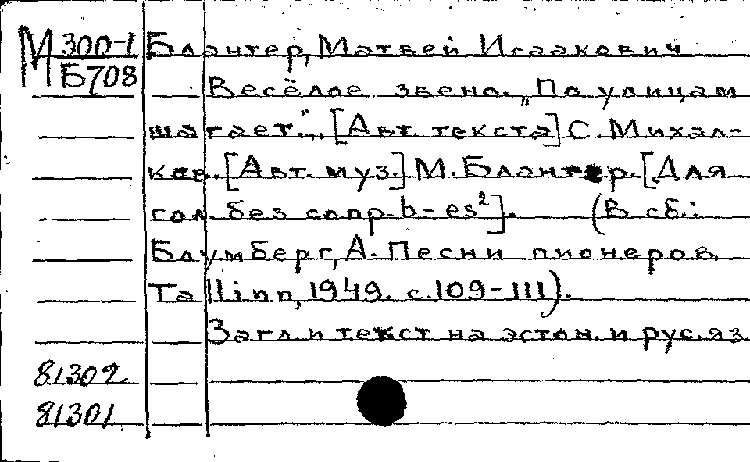 М 300-1 Блантер, Матвей Исаакович
Б708 Весёлое звено. „По улицам
шагает.“, [Авт. текста] С. Михал-
ков. [Авт. муз.] М. Блантер. [Для
гол. без сопр. b-es²]. (В сб.:
Блумберг, А. Песни пионеров.
Tallinn, 1949. с. 109-111).
Загл. и текст на эстон. и рус. яз.
81302
81301